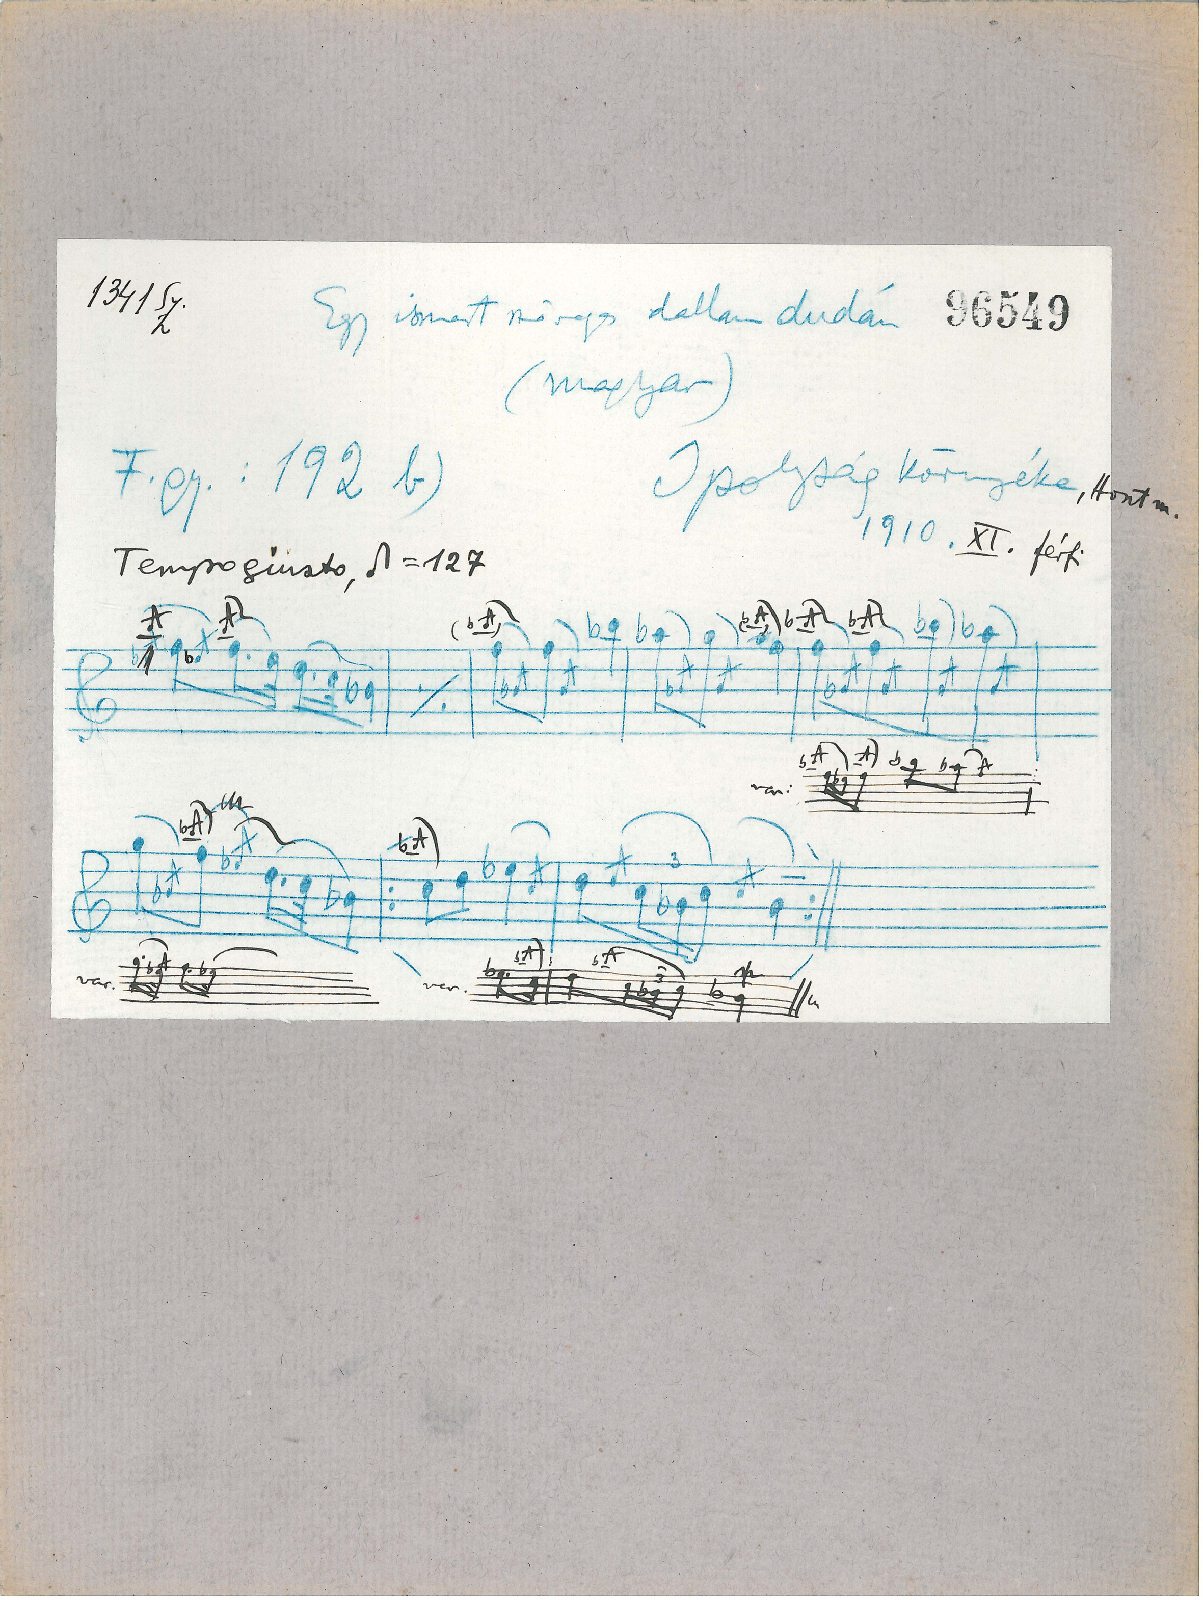 1341 Sz.
2
Egy ismert szöveges dallam dudán
96549
(magyar)
F. gy. : 192 b)
Ipolyság környéke, Hont m.
1910. XI. férfi
Tempo giusto, ♪ = 127
var:
3
var.
var.
3